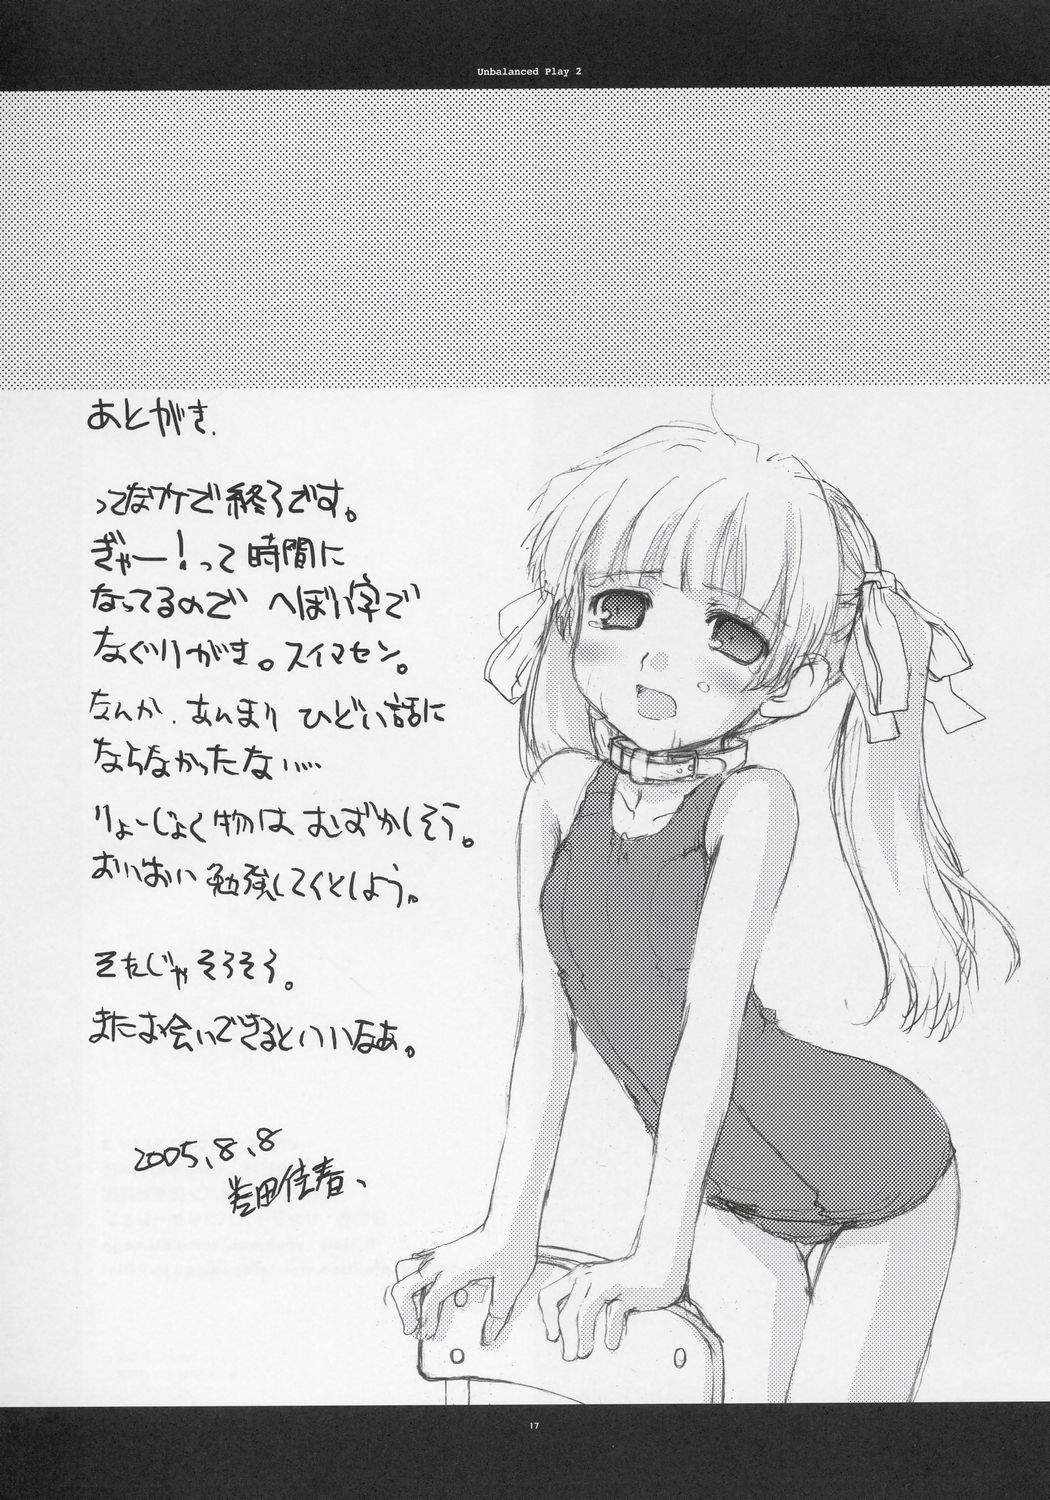 Unbalanced Play 2
あとがき.
ってなワケで終了です。
ぎゃー!って時間に
なってるので へぼい字で
なぐりがき。スイマセン。
なんか、あんまり ひどい話に
ならなかったない…
りょーじょく物は むずかしそう。
おいおい 勉強してくとしよう。
そんじゃそろそろ。
またお会いできるといいなあ。
2005.8.8
田佳春、
17